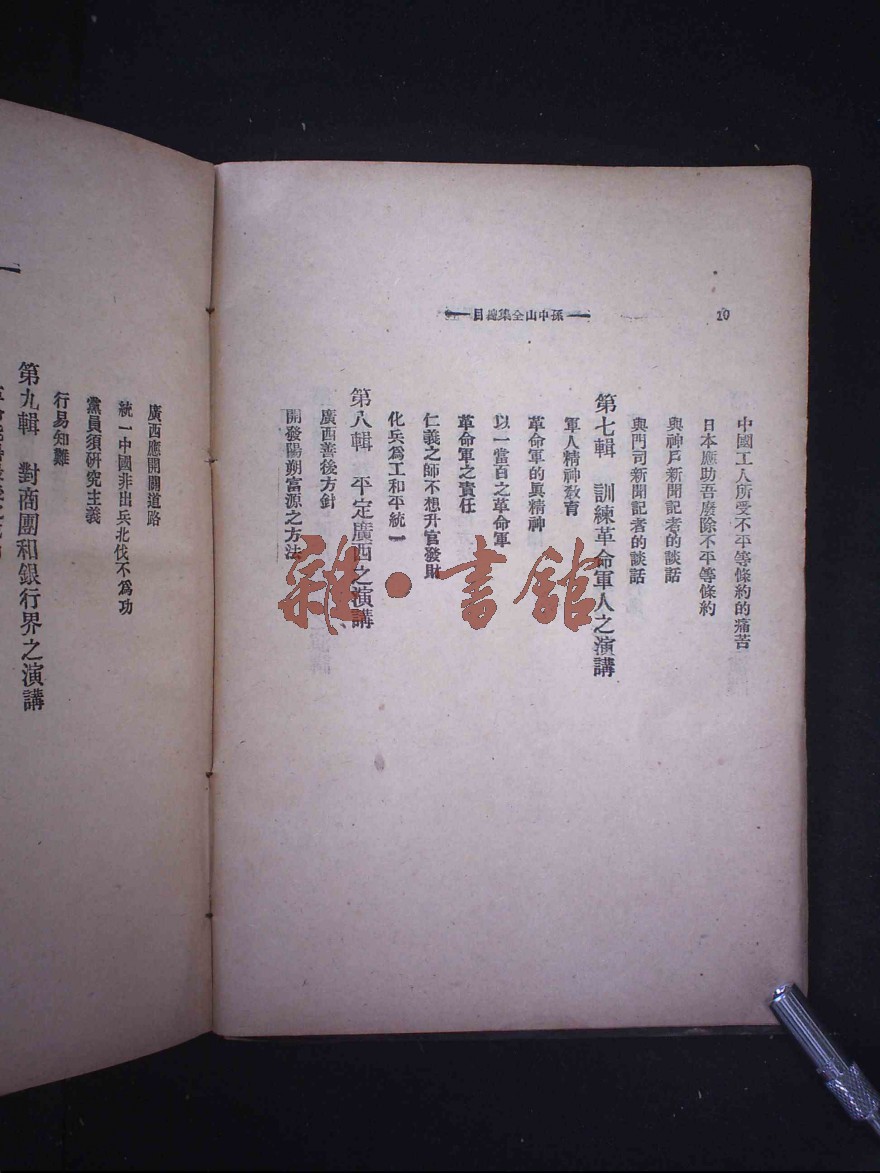 10
孫中山全集總目
中國工人所受不平等條約的痛苦
日本應助吾廢除不平等條約
與神戶新聞記者的談話
與門司新聞記者的談話
第七輯 訓練革命軍人之演講
軍人精神教育
革命軍的眞精神
以一當百之革命軍
革命軍之責任
仁義之師不想升官發財
化兵爲工和平統一
第八輯 平定廣西之演講
廣西善後方針
開發陽朔富源之方法
廣西應開闢道路
統一中國非出兵北伐不爲功
黨員須硏究主義
行易知難
第九輯 對商團和銀行界之演講
雜·書館